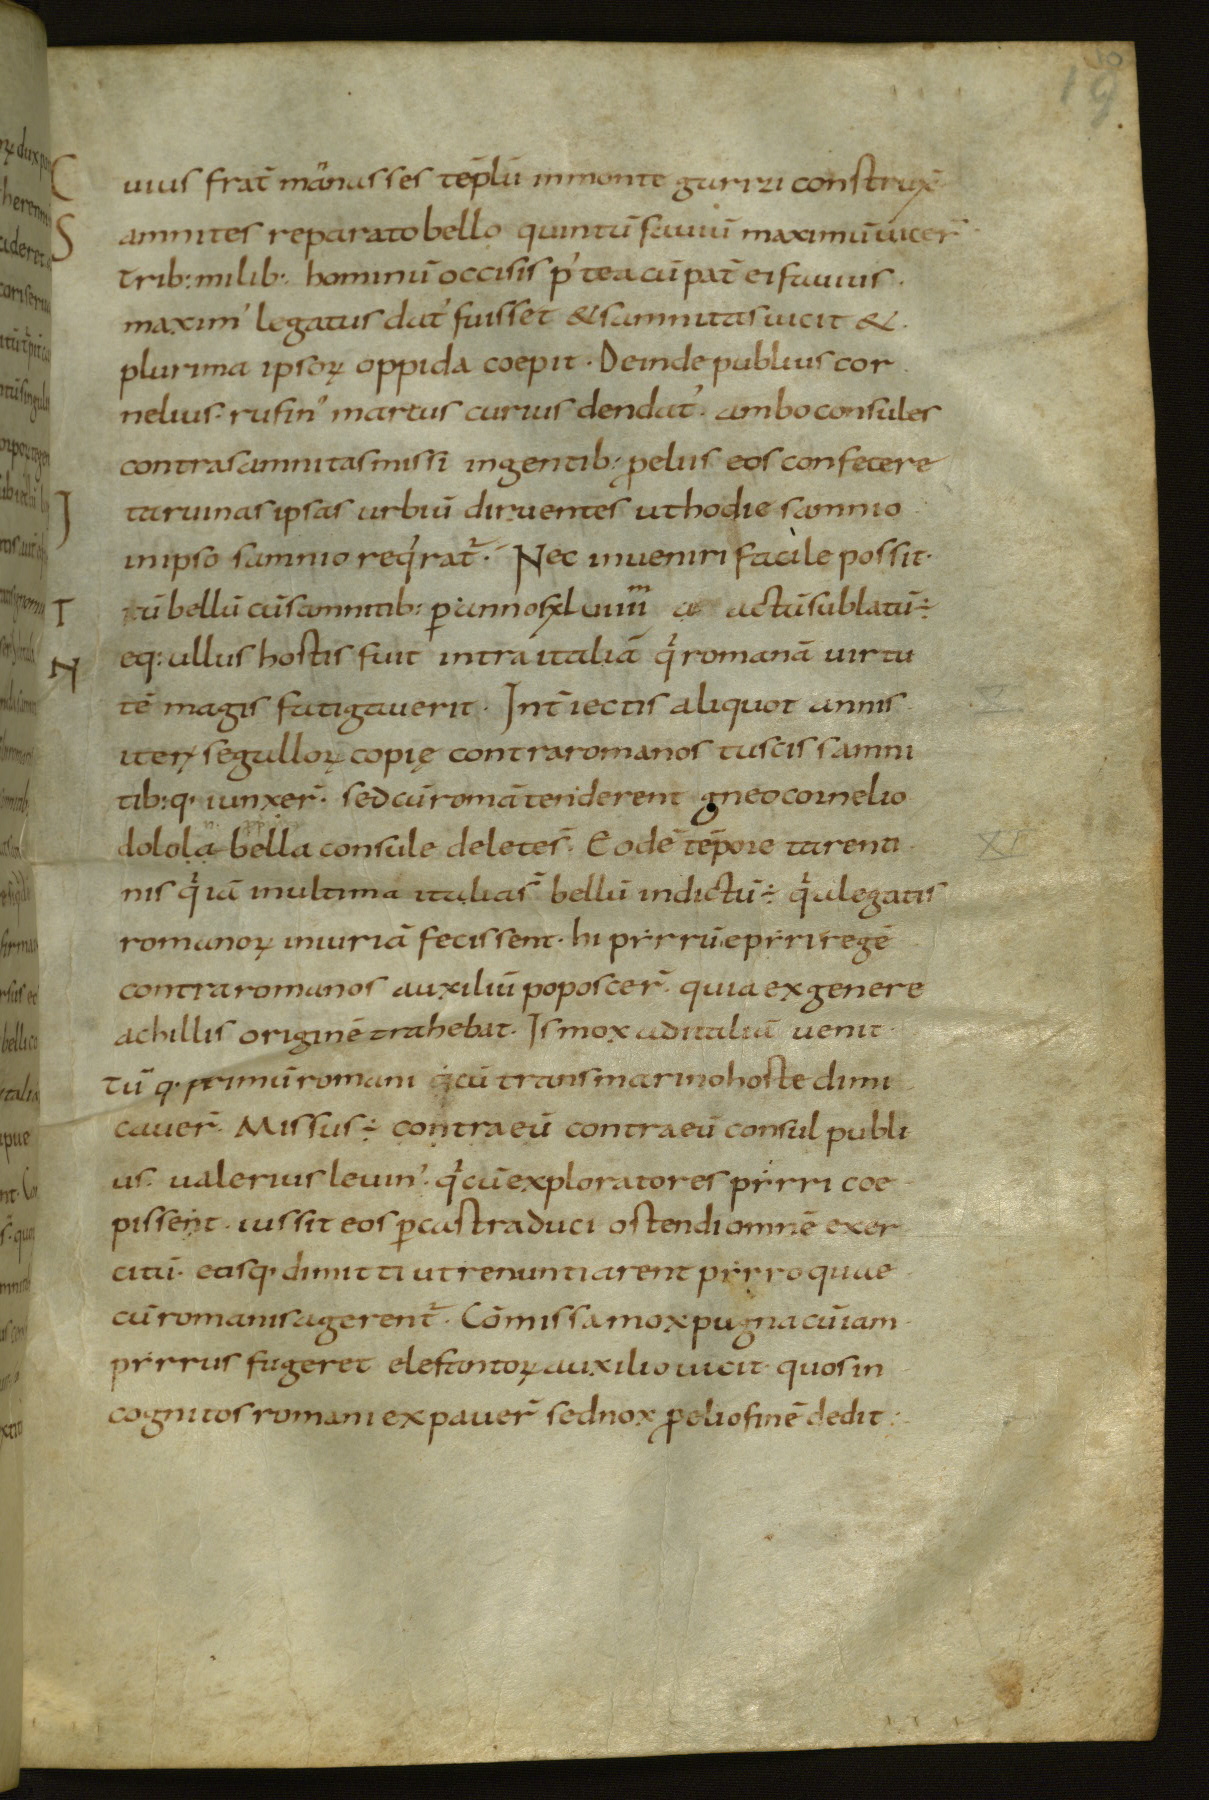 19
Cuius frat̄ mānasses tēplū inmonte garizi construx̄
Samnites reparato bello quintū fauiū maximū uicer̄
trib: milib: hominū occisis p' tea cū pat̄ ei fauius.
maxim' legatus dat' fuisset & samnitas uicit &.
plurima ipsoꝝ oppida coepit. Deinde publius cor
nelius. rufin' martus curius dendat'. ambo consules
contra samnitas missi ingentib: ꝓelus eos confecere
Itaruinas ipsas urbiū diruentes ut hodie samnio
inipso samnio req'rat̄. Nec inueniri facile possit.
Tū bellū cū samnitib: ꝑ annos xl uiiii actū sublatū ÷
Neq: ullus hostis fuit intra italiā q' romanā uirtu
tē magis fatigauerit. Int̄iectis aliquot annis
iteꝝ segulloꝝ copię contra romanos tuscis samni
tib: q. iunxer̄. sed cū romā tenderent gneo cornelio
dolola bella consule deletes̄. Eodē tēpore tarenti
nis q' iā inultima italia s̄ bellū indictū ÷ q'a legatis
romanoꝝ iniuriā fecissent. hi pirrū epiri regē
contra romanos auxiliū poposcer̄. quia ex genere
achillis originē trahebat. Is mox ad italiā uenit
tū q. primū romani cū transmarino hoste dimi
cauer̄. Missus ÷ contra eū contra eū consul publi
us. ualerius leuin'. q' cū exploratores pirri coe
pissent. iussit eos ꝑ castra duci ostendi omnē exer
citū. eosq. dimitti ut renuntiarent pirro quae
cū romanis agerent̄. Cōmissa mox pugna cū iam
pirrus fugeret elefantoꝝ auxilio uicit. quos in
cognitos romani expauer̄ sed nox ꝓelio finē dedit:
X
XI